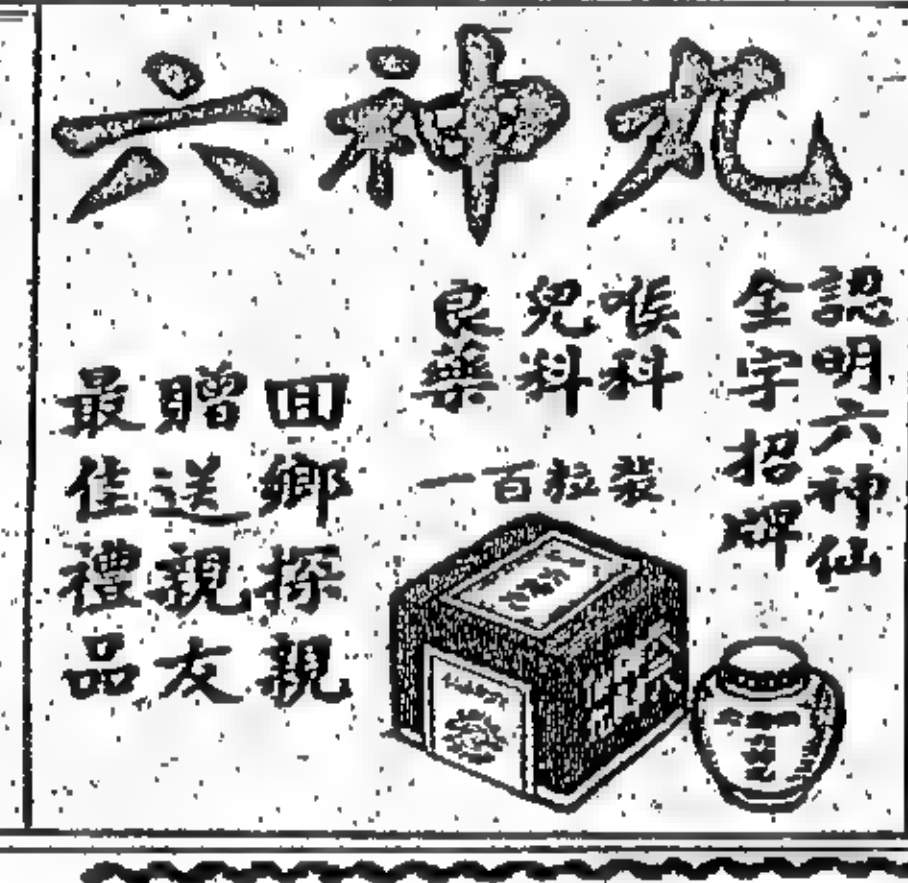 六神丸
認明六神仙
全字招牌
喉科
兒科
良藥
一百粒裝
回鄉探親
贈送親友
最佳禮品